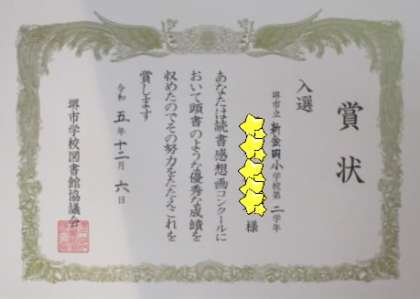 賞状
入選
堺市立新金岡小学校第二学年
様
あなたは読書感想画コンクールに
おいて頭書のような優秀な成績を
収めたのでその努力をたたえこれを
賞します
令和五年十二月六日
堺市学校図書館協議会